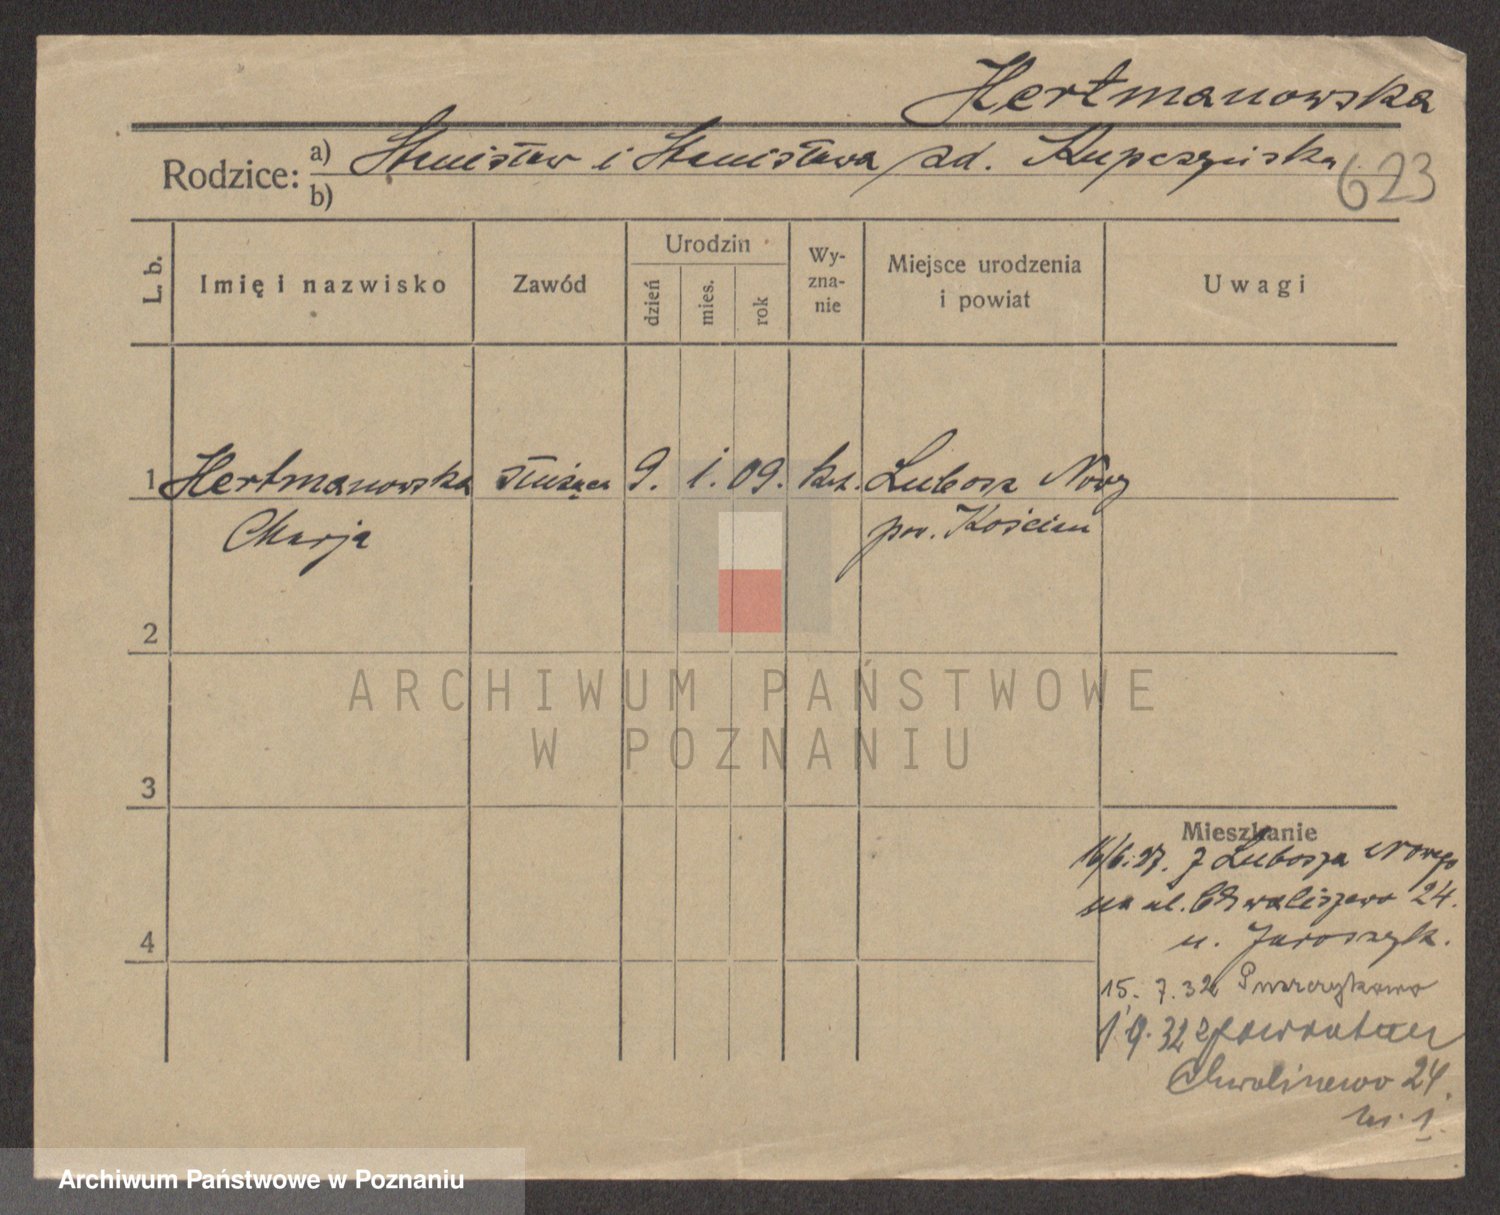 Hertmanowska
Rodzice: a) Stanisław i Stanisława zd. Kupczyńska
b)
623
L. b.
Imię i nazwisko
Zawód
Urodzin
dzień
mies.
rok
Wy-
zna-
nie
Miejsce urodzenia
i powiat
Uwagi
1 Hertmanowska służąca 9. 1. 09. kat. Lubosz Nowy
Marja pow. Kościan
2
ARCHIWUM PAŃSTWOWE
W POZNANIU
3
Mieszkanie
16/6.27. z Lubosza Nowego
na ul. Chwaliszewo 24.
u. Jaroszyk.
4
15. 7.32 Puszczykowo
1.9.32 z powrotem
Chwaliszewo 24.
m. 1.
Archiwum Państwowe w Poznaniu